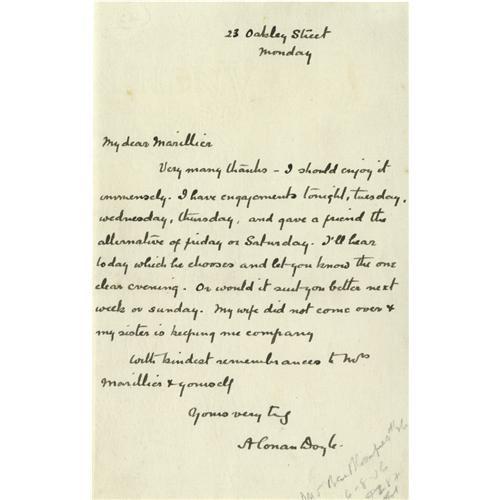 23 Oakley Street
Monday
My dear Marillier
Very many thanks - I should enjoy it
immensely. I have engagements tonight, tuesday,
wednesday, thursday, and gave a friend the
alternative of friday or Saturday. I'll hear
today which he chooses and let you know the one
clear evening. Or would it suit you better next
week or sunday. My wife did not come over &
my sister is keeping me company
With kindest remembrances to Mrs
Marillier & yourself
Yours very truly
A Conan Doyle.